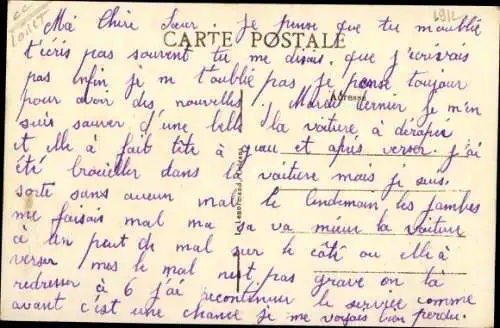 Ma Chère Sœur. Je pense que tu m'oublié
CARTE POSTALE
t'éris pas souvent tu me disais que j'écrivais
pas enfin je m t'oublié pas je pense toujour
Adresse
pour avoir des nouvelles. Mardi dernier je m'en
suis sauver d'une belle la voiture à dérapée
et elle à fait tête à queau et apres verser. j'ai
été brouieller dans la voiture mais je suis
sorte sans aucun mal le lendemain les jambes
me faisais mal ma sa va mieux la voiture
à un peut de mal sur le côté ou elle à
verser mes le mal n'est pas grave on là
redresser à 6 j'ai recontenuer le service comme
avant c'est une chance je me voyais bien perdu.